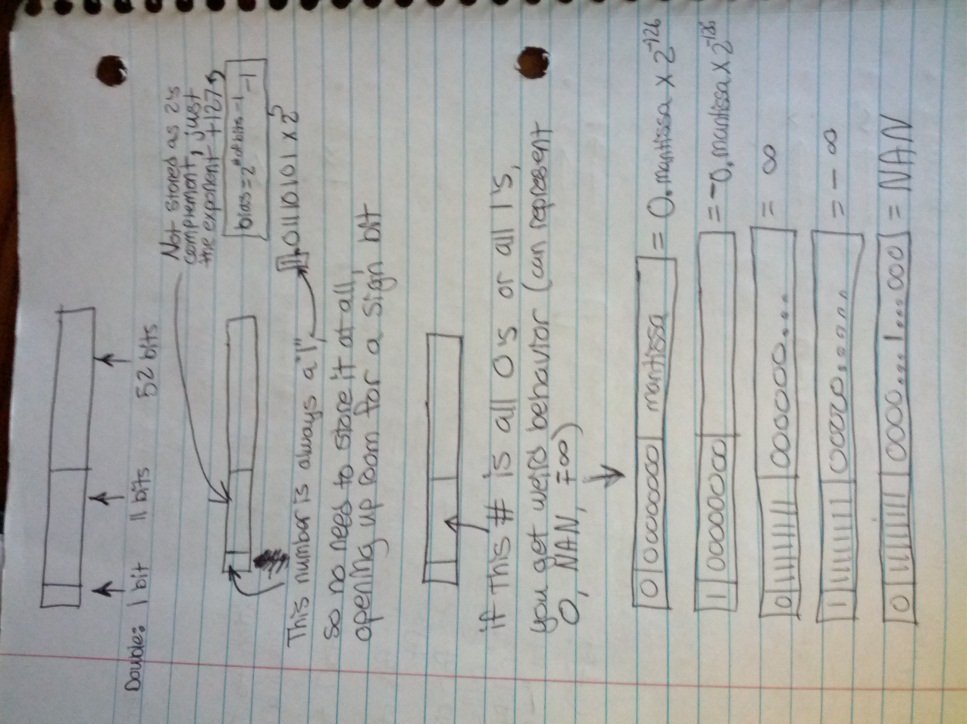 Double: 1 bit 11 bits 52 bits
Not stored as 2's
complement, just
the exponent +127
bias = 2^# of bits - 1 - 1
1.0110101 x 2^5
This number is always a "1",
so no need to store it at all,
opening up room for a sign bit
if this # is all 0s or all 1's,
you get weird behavior (can represent
0, NAN, ∓∞)
0 00000000 mantissa = 0.mantissa x 2^-126
1 00000000 = -0.mantissa x 2^-126
0 11111111 000000.... = ∞
1 11111111 00000...... = - ∞
0 11111111 0000...1...000 = NAN